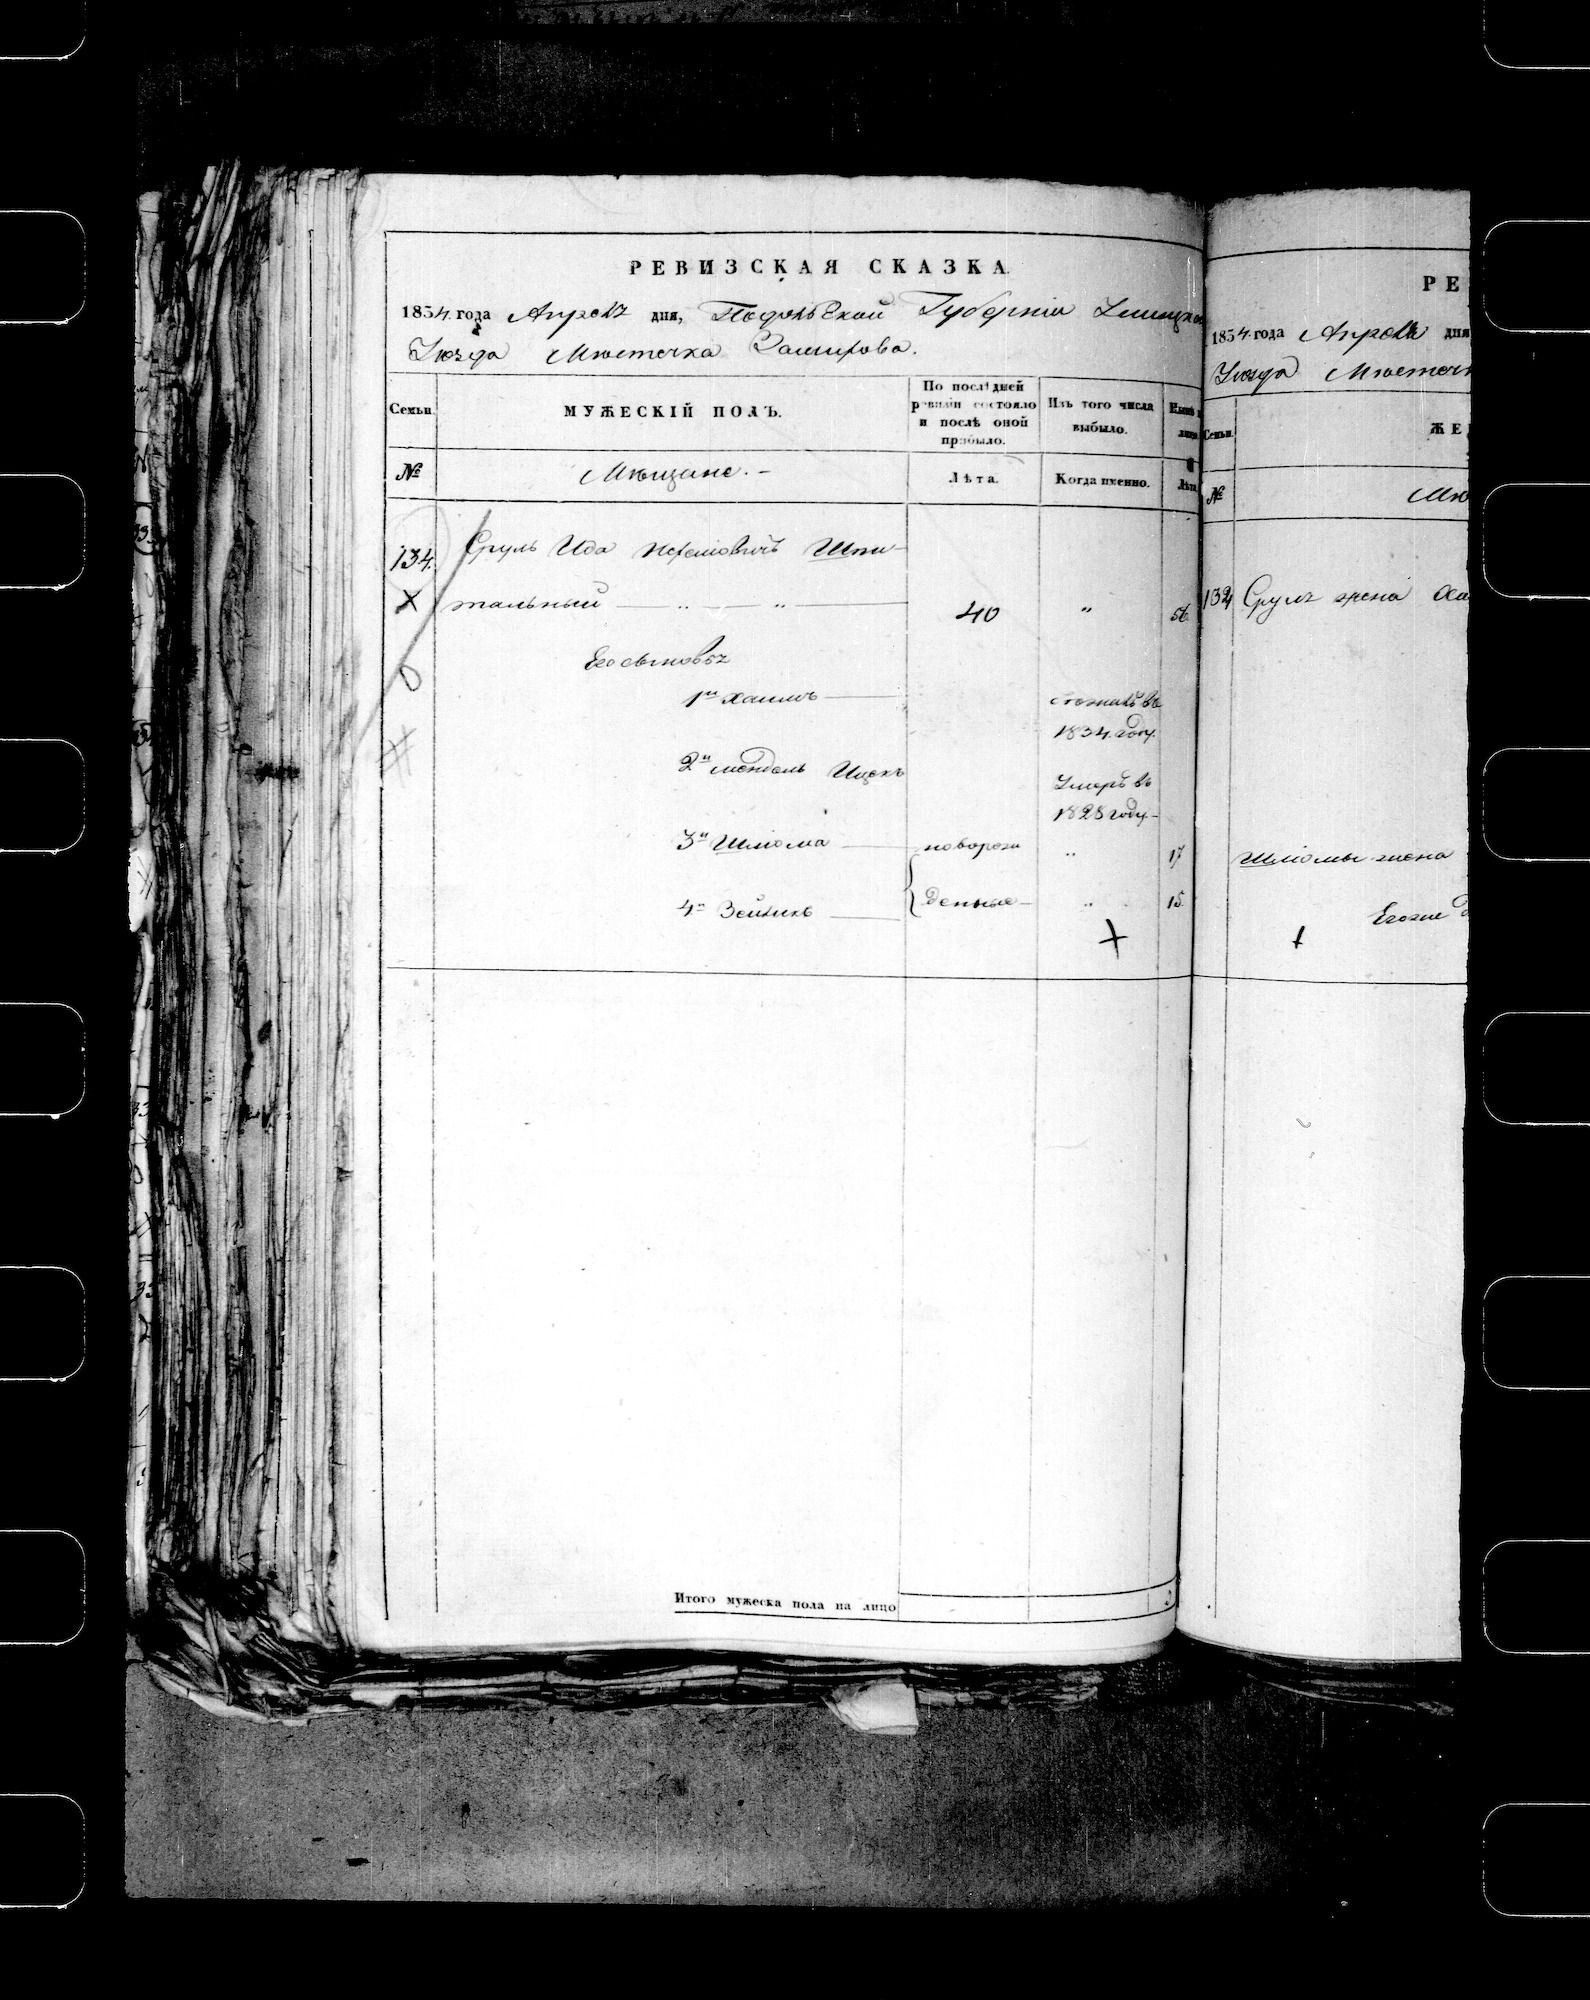 РЕВИЗСКАЯ СКАЗКА
1854. года Апрель дня, Подольской Губерніи Ушицкаго
Уѣзда Мѣстечка Замѣхова.
Семьи.
МУЖЕСКІЙ ПОЛЪ.
По послѣдней
ревизіи состояло
и послѣ оной
прибыло.
Изъ того числа
выбыло.
№
Мѣщане. –
Лѣта.
Когда именно.
Лѣта
134.
Сруль Иоа Шпи-
тальный — „ — „ —
40
„
56
Его сыновья
1й Хаимъ —
1834. году.
2й Мендель Ицекъ
Умеръ въ
1828 году –
3й Шлома — новорож
„
17
4й Зейликъ — денные –
„
15
Итого мужеска пола на лицо
3
РЕ
1854. года Апрель дня
Уѣзда Мѣстечк
Семьи.
ЖЕ
№
Мѣ
134 Сруля жена
Шломы жена
Ея же д